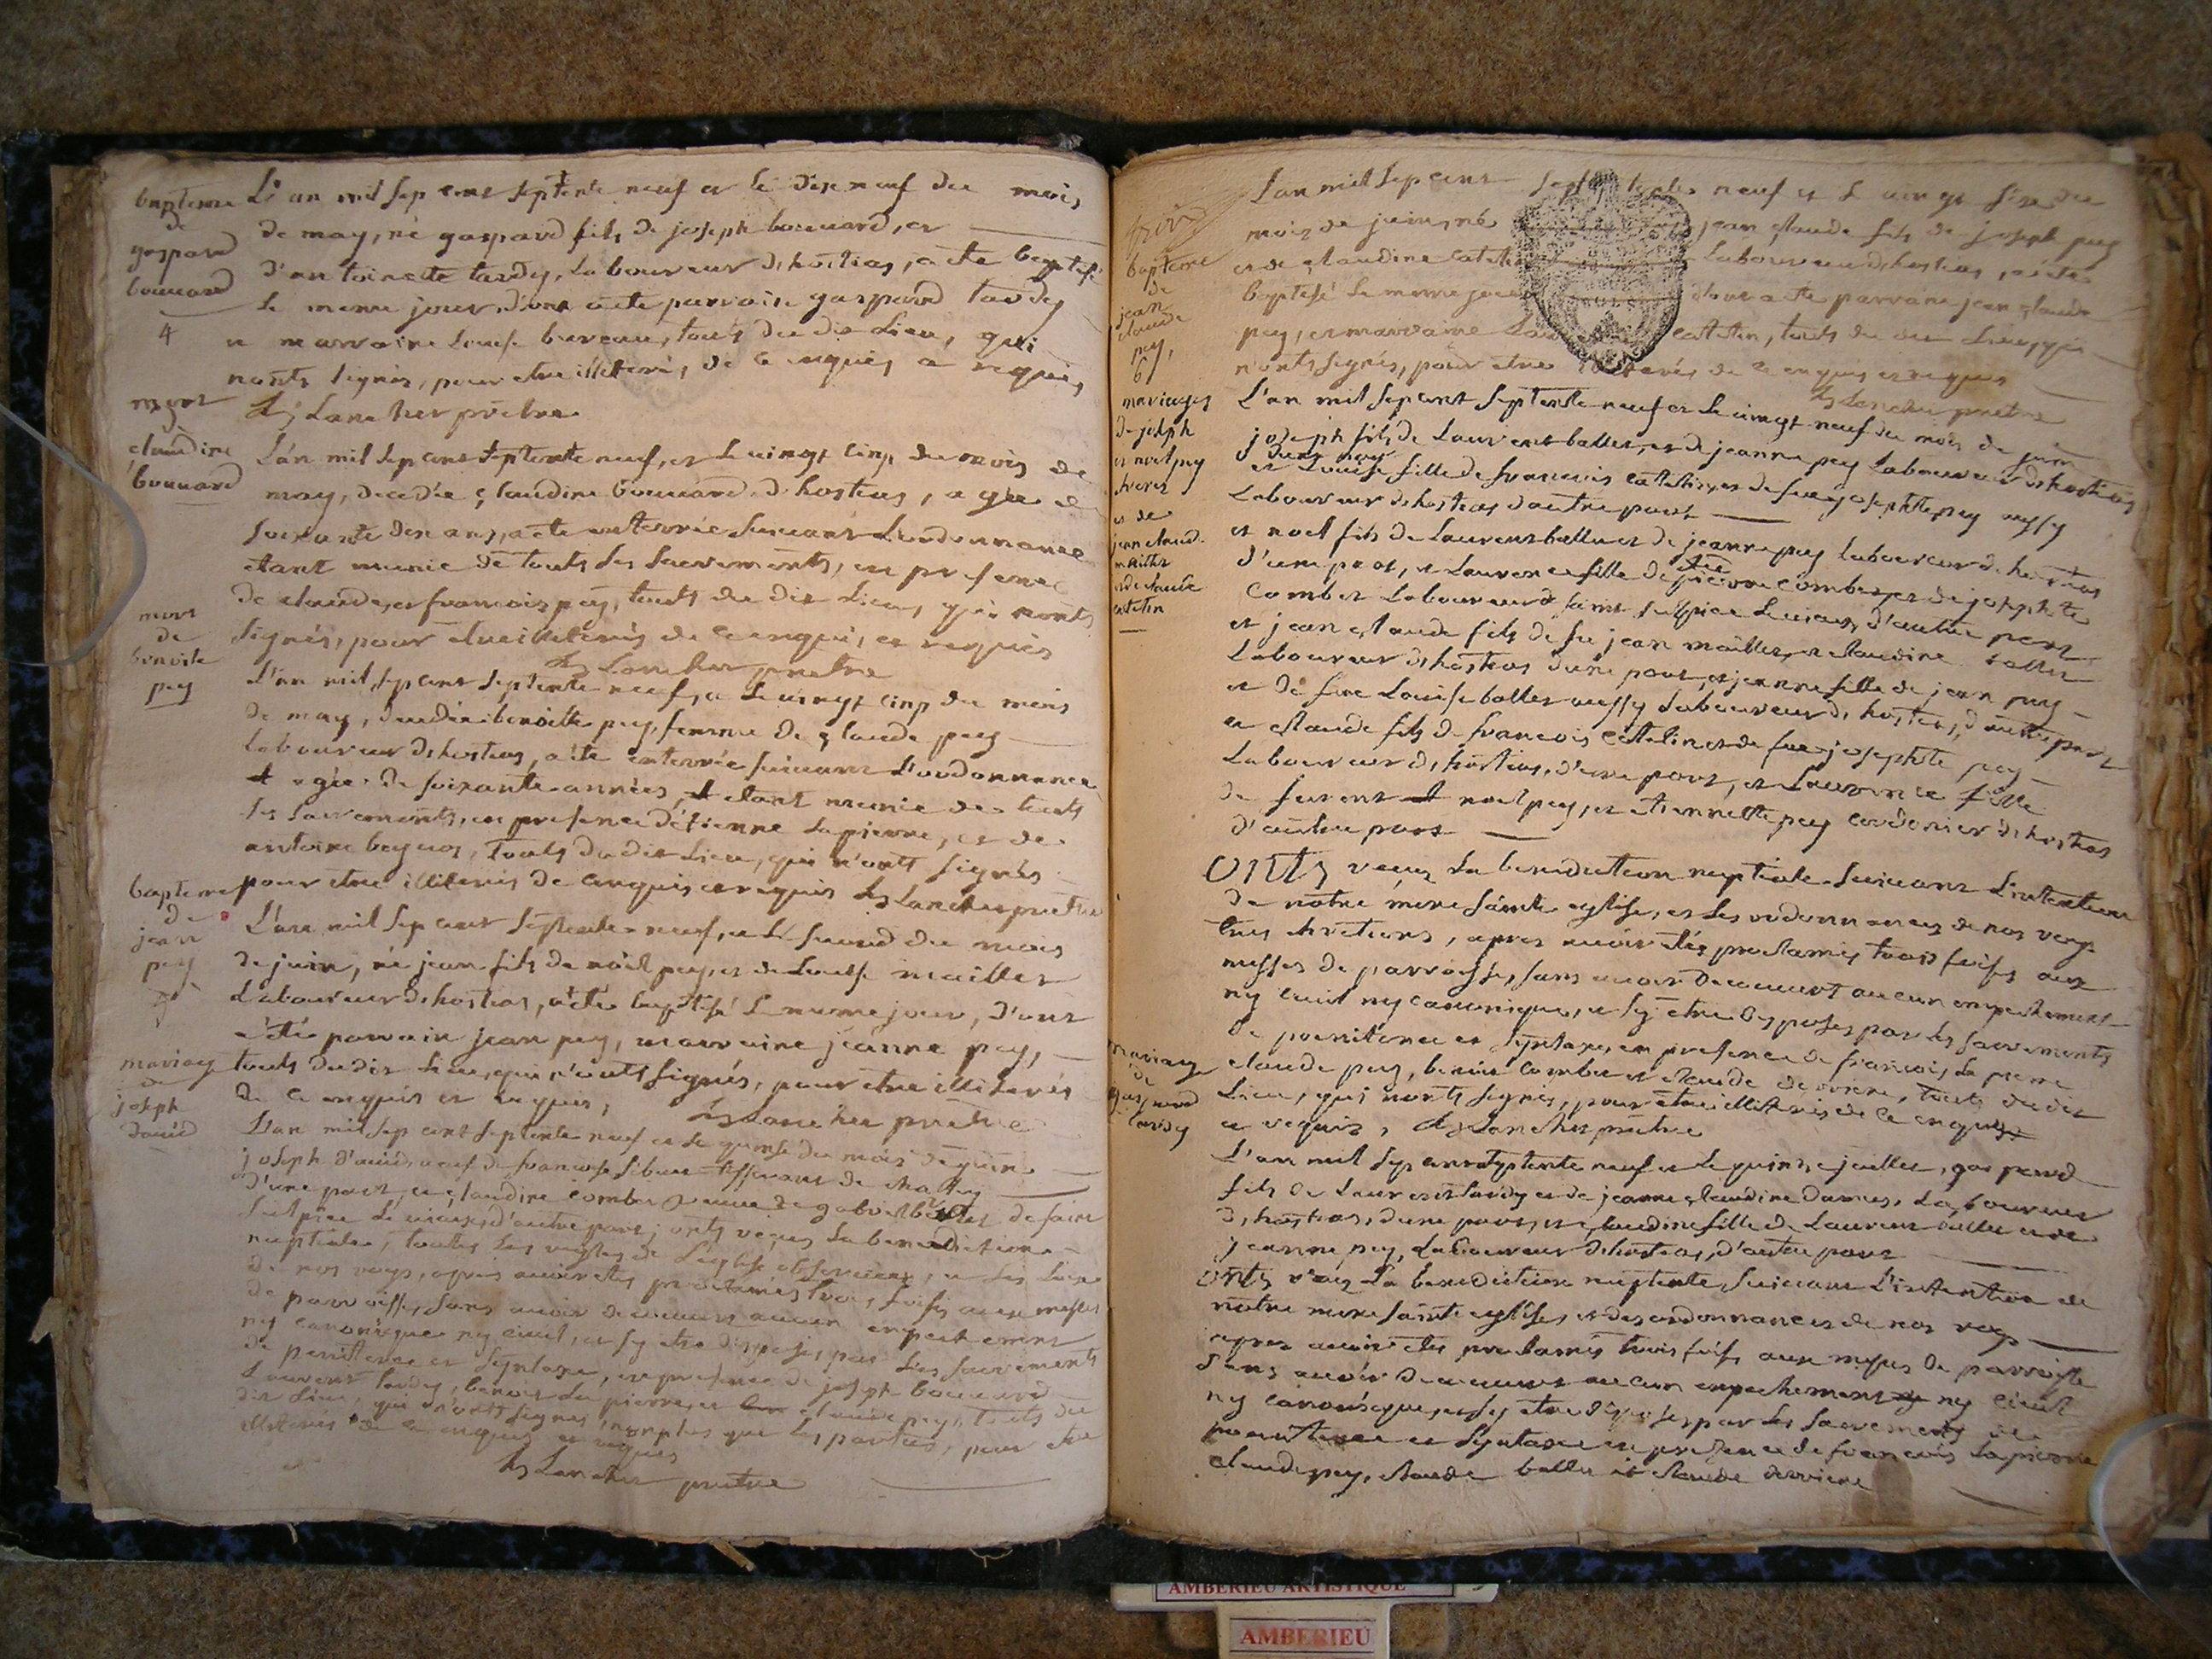 bapteme
de
gaspard
bouuard
4
L'an mil sep cent septente neuf et le dix neuf du mois
de may, né gaspard fils de joseph bouuard, et
d'antoinette tardy, laboureur d'hostias, a été baptisé
le meme jour, d'ont a été parrain gaspard tardy
et marraine Louise bureau, touts du dit Lieu, qui
n'onts signés, pour etre illiterés de ce enquis et requis
Lancher prêtre
mort
claudine
bouuard
L'an mil sep cent septente neuf, et le vingt cinq du mois de
may, decedée claudine bouuard d'hostias, agée de
soixante dix ans, a été enterrée suivant L'ordonnance
etant munie de touts les sacrements, en presence
de claude, et francois pey, touts du dit Lieu, qui n'onts
signés, pour etre illiterés de ce enqui, et requis
Lancher prêtre
mort
de
benoite
pey
L'an mil sep cent septente neuf, et le vingt cinq du mois
de may, decedée benoitte pey, femme de claude pey
laboureur d'hostias, a été enterrée suivant L'ordonnance
agée de soixante années, etant munie de touts
les sacrements, en presence d'étienne Lapierre, et de
antoine, touts du dit Lieu, qui n'onts signés
pour etre illiterés de ce enquis et requis Lancher prêtre
bapteme
de
jean
pey
L'an mil sep cent septente neuf, et le second du mois
de juin, né jean fils de noël pey, et de Louise maillet
Laboureur d'hostias, a été baptisé le meme jour, d'ont
a été parrain jean pey, marraine jeanne pey,
touts du dit Lieu, qui n'onts signés, pour etre illiterés
de ce enquis et requis, Lancher prêtre
mariage
de
joseph
david
L'an mil sep cent septente neuf et le quinse du mois de juin
joseph d'avid, veuf de francoise
d'une part, et claudine combe veuve de gabriel de saint
sulpice Le vieux, d'autre part, onts reçus la benediction
nuptiale, toutes les regles de L'eglise observées, et les Loix
de nos roys, apres avoir etés proclamés trois foises aux messes
de parroisse, sans avoir decouvert aucun empechement
ny canonique ny civil, et sy etre disposés par Les sacrements
de penitence et Syntaxe, en presence de joseph bouuard
Laurent tardy, benoit La pierre, et claude pey, touts du
dit Lieu, qui n'onts signés, non plus que les parties, pour etre
illiterés de ce enquis et requis
Lancher prêtre
bapteme
de
jean
claude
pey,
6
L'an mil sep cent septente neuf et le vingt six du
mois de juin, né jean claude fils de joseph pey
et de claudine Laboureur d'hostias, a été
baptisé le meme jour d'ont a été parrain jean claude
pey, et marraine catetin, touts du dit Lieu, qui
n'onts signés, pour etre illiterés de ce enquis et requis
Lancher prêtre
mariages
de joseph
et noel pey
freres
et de
jean claude
maillet
et de claude
catetin
L'an mil sep cent septente neuf et le vingt neuf du mois de juin
joseph fils de Laurent ballet, et de jeanne pey laboureur d'hostias
d'une part
et Louise fille de francois catetin, et de feue josephte pey aussy
Laboureur d'hostias d'autre part
et noel fils de Laurent ballet et de jeanne pey laboureur d'hostias
d'une part, et Laurence fille de pierre combet, et de josephte
combet Laboureur de saint sulpice Le vieux, d'autre part
et jean claude fils de feu jean maillet, et claudine ballet
Laboureur d'hostias d'une part, et jeanne fille de jean pey
et de feue Louise ballet aussy Laboureur d'hostias, d'autre part
et claude fils de francois catetin et de feue josephte pey
Laboureur d'hostias, d'une part, et Laurence fille
de noel pey, et etiennette pey cordonier d'hostias
d'autre part
onts reçus La benediction nuptiale suivant L'intention
de notre mere sainte eglise, et les ordonnances de nos roys
tres chretiens, apres avoir etés proclamés trois foises aux
messes de parroisse, sans avoir decouvert aucun empechement
ny civil ny canonique, et sy etre disposés par les sacrements
de penitence et Syntaxe, en presence de francois La pierre
claude pey, benoit combet et claude derriere, touts du dit
Lieu, qui n'onts signés, pour etre illiterés de ce enquis
et requis, Lancher prêtre
mariage
de
gaspard
tardy
L'an mil sep cent septente neuf et le quinse juillet, gaspard
fils de Laurent tardy et de jeanne claudine, Laboureur
d'hostias, d'une part, et claudine fille de Laurent ballet et de
jeanne pey, Laboureur d'hostias, d'autre part
onts reçus La benediction nuptiale, suivant L'intention de
notre mere sainte eglise, et des ordonnances de nos roys
apres avoir etés proclamés trois foises aux messes de parroisse
sans avoir decouvert aucun empechement ny civil
ny canonique, et sy etre disposés par les sacrements de
penitence et Syntaxe en presence de francois Lapierre
claude pey, claude ballet et claude derriere
AMBERIEU ARTISTIQUE
AMBERIEU